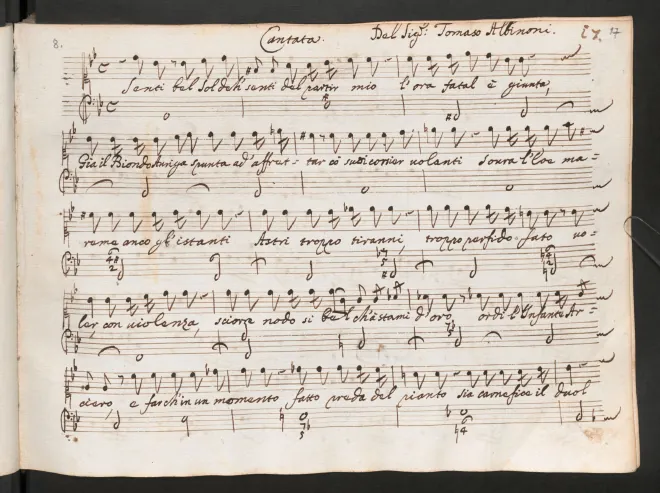 8. Cantata. Del Sig.r Tomaso Albinoni. 17
Senti bel Sol deh senti del partir mio l'ora fatal è giunta,
Gia il Biondo Auriga spunta ad affret- tar co suoi corsier volanti Soura l'Eoe ma=
reme anco gl'istanti Astri troppo tiranni, troppo perfido fato uo=
ler, con uiolenza, sciorre nodo si bel ch'astami d'oro ordì l'Infante Ar=
ciero, e farch'in un momento fatto preda del pianto sia carnefice il duol